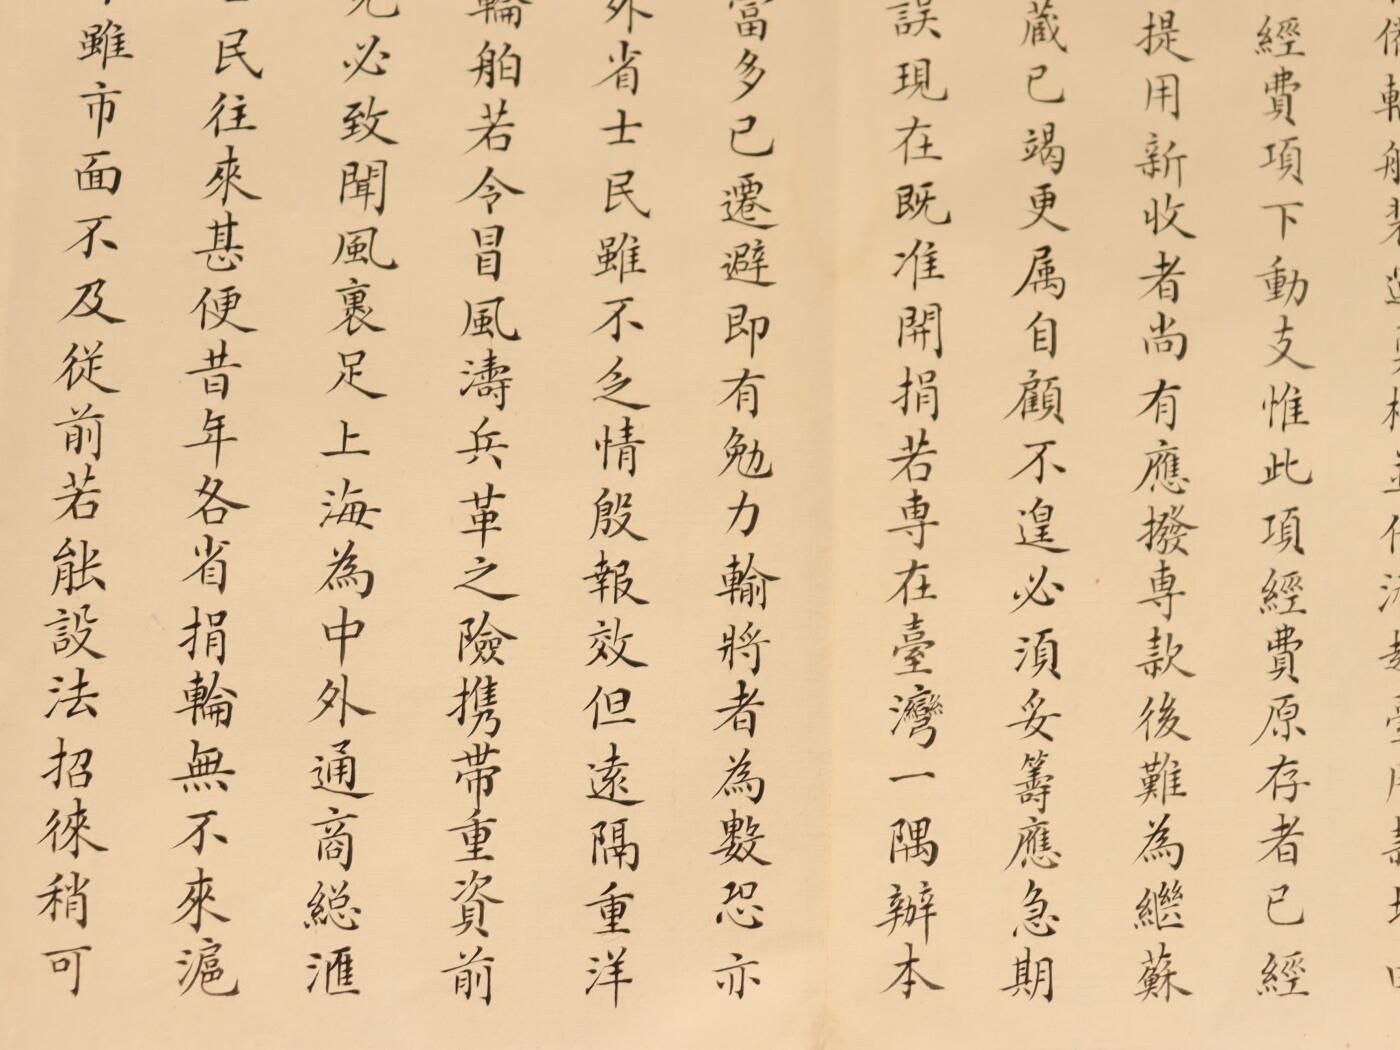 經費項下動支惟此項經費原存者已經
提用新收者尚有應撥専款後難為繼蘇
蔵已竭更属自顧不遑必須妥籌應急期
誤現在既准開捐若専在臺灣一隅辦本
富多已遷避即有勉力輸將者為數恐亦
外省士民雖不乏情殷報效但遠隔重洋
輪舶若令冒風濤兵革之險携帯重資前
必致聞風裹足上海為中外通商総滙
民往來甚便昔年各省捐輪無不來滬
雖市面不及從前若能設法招徠稍可